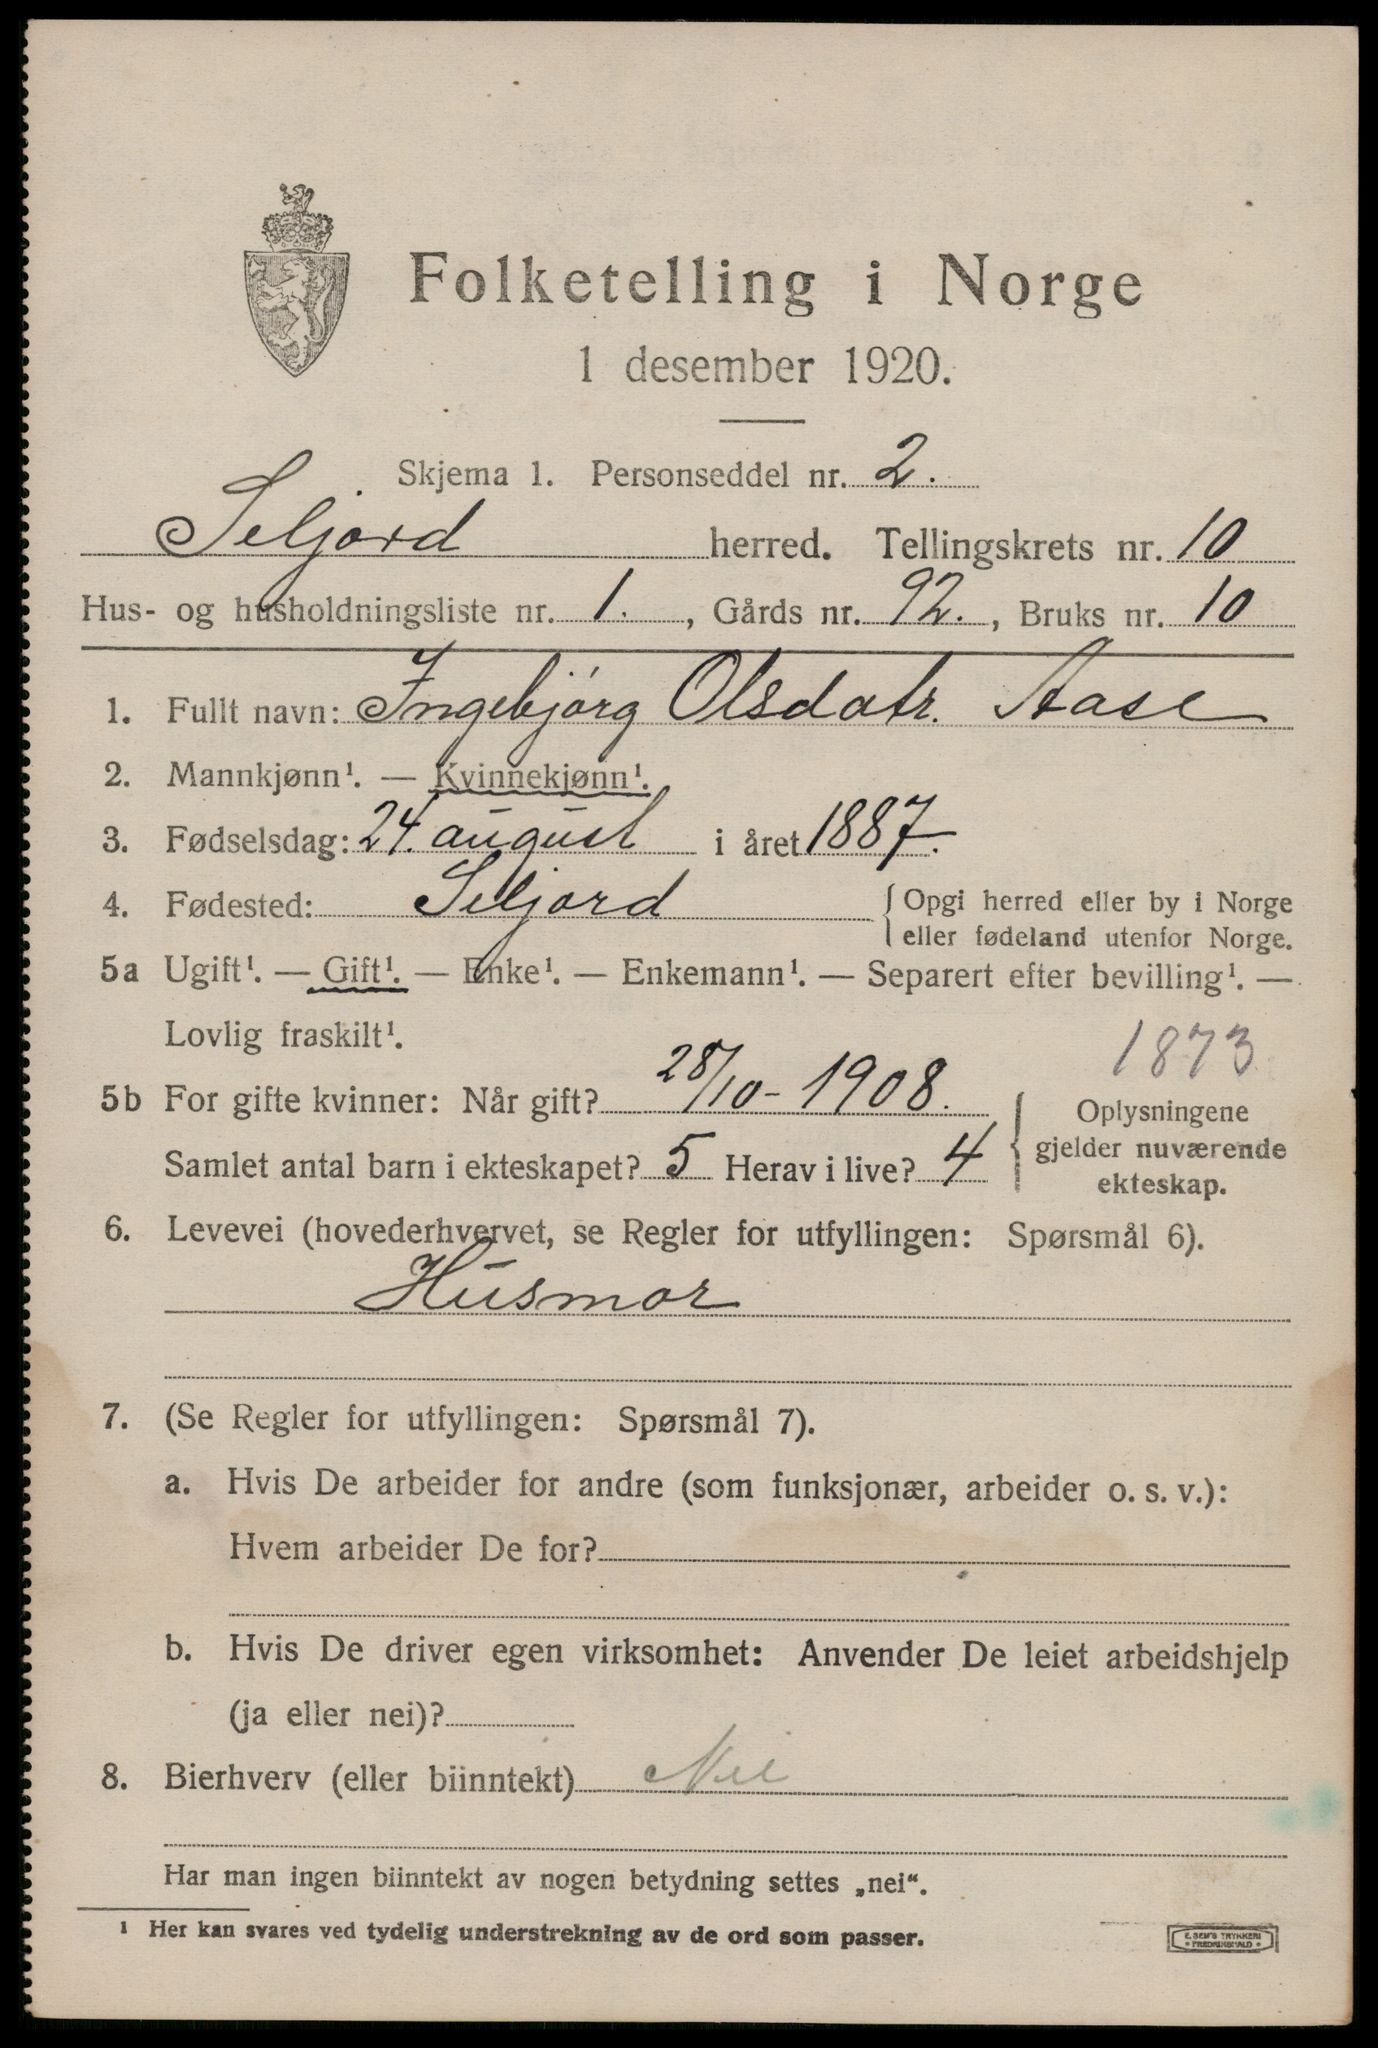 Folketelling i Norge
1 desember 1920.
Skjema 1. Personseddel nr. 2.
Seljord herred. Tellingskrets nr. 10
Hus- og husholdningsliste nr. 1. , Gårds nr. 92. , Bruks nr. 10
1. Fullt navn: Ingebjörg Olsdatr. Aase
2. Mannkjønn¹. — Kvinnekjønn¹.
3. Fødselsdag: 24. august i året 1887.
4. Fødested: Seljord { Opgi herred eller by i Norge
eller fødeland utenfor Norge.
5a Ugift¹. — Gift¹. — Enke¹. — Enkemann¹. — Separert efter bevilling¹. —
Lovlig fraskilt¹.
1873
5b For gifte kvinner: Når gift? 28/10 - 1908.
Samlet antal barn i ekteskapet? 5 Herav i live? 4
{ Oplysningene
gjelder nuværende
ekteskap.
6. Levevei (hovederhvervet, se Regler for utfyllingen: Spørsmål 6).
Husmor
7. (Se Regler for utfyllingen: Spørsmål 7).
a. Hvis De arbeider for andre (som funksjonær, arbeider o. s. v.):
Hvem arbeider De for?
b. Hvis De driver egen virksomhet: Anvender De leiet arbeidshjelp
(ja eller nei)?
8. Bierhverv (eller biinntekt) Nei
Har man ingen biinntekt av nogen betydning settes „nei“.
¹ Her kan svares ved tydelig understrekning av de ord som passer.
E. SEM'S TRYKKERI
• FREDRIKSHALD •